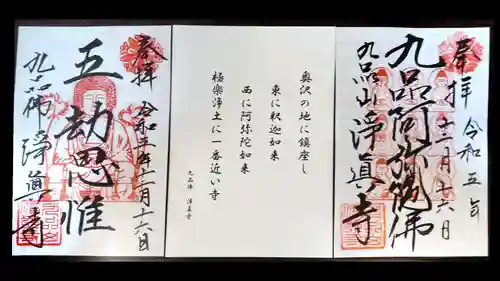 奉拝
令和五年
十一月十六日
九品阿弥陀佛
九品山
淨眞寺
奥沢の地に鎮座し
東に釈迦如来
西に阿弥陀如来
極楽浄土に一番近い寺
九品佛 淨真寺
奉拝
令和五年十一月十六日
五劫思惟
九品佛 淨眞寺